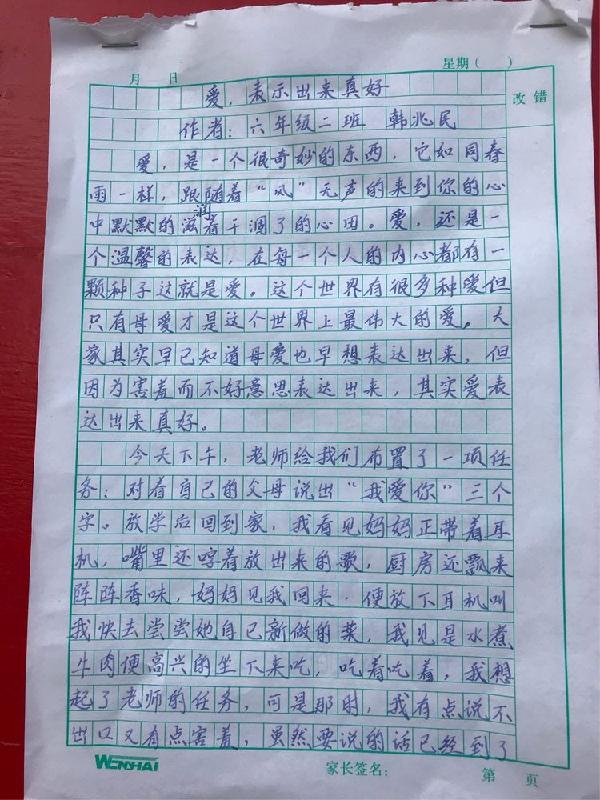 月 日 星期( )
改错
爱，表示出来真好
作者：六年级二班 韩兆民
爱，是一个很奇妙的东西，它如同春
雨一样，跟随着“风”无声的来到你的心
中默默的滋润着干涸了的心田。爱，还是一
个温馨的表达，在每一个人的内心都有一
颗种子这就是爱。这个世界有很多种爱但
只有母爱才是这个世界上最伟大的爱。大
家其实早已知道母爱也早想表达出来，但
因为害羞而不好意思表达出来，其实爱表
达出来真好。
今天下午，老师给我们布置了一项任
务：对着自己的父母说出“我爱你”三个
字。放学后回到家，我看见妈妈正带着耳
机，嘴里还哼着放出来的歌，厨房还飘来
阵阵香味，妈妈见我回来，便放下耳机叫
我快去尝尝她自己新做的菜，我见是水煮
牛肉便高兴的坐下来吃，吃着吃着，我想
起了老师的任务，可是那时，我有点说不
出口又有点害羞，虽然要说的话已经到了
WENHAI 家长签名： 第 页